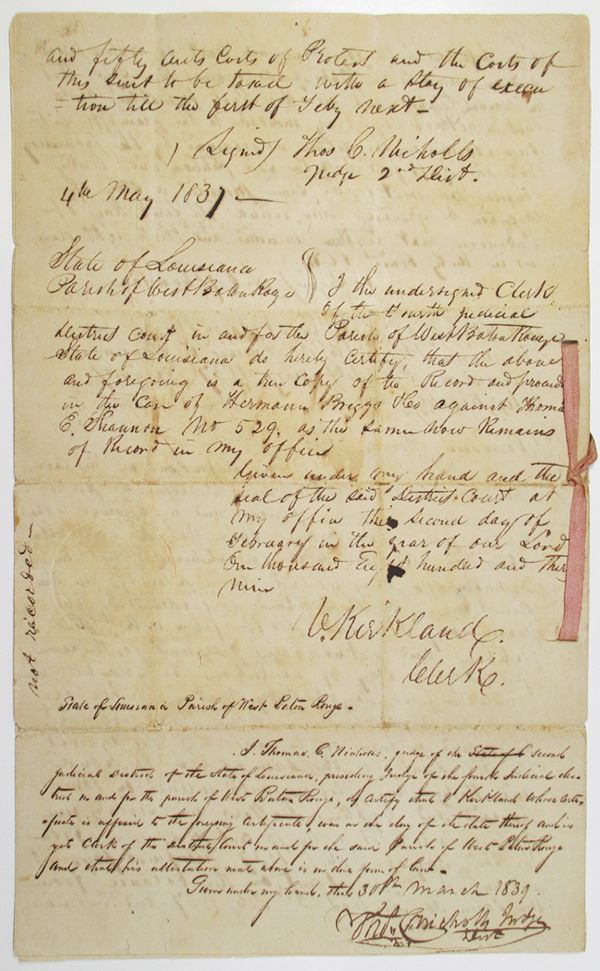 and fifty cents Costs of Protest and the Costs of
this suit to be taxed with a Stay of execu
-tion till the first of Feby next -
(Signed) Thos C. Nicholls
Judge 2nd Dist.
4th May 1837 -
State of Louisiana
Parish of West Baton Rouge
I the undersigned Clerk
of the Fourth judicial
District Court in and for the Parish of West Baton Rouge
State of Louisiana do hereby Certify, that the above
and foregoing is a true Copy of the Record and proceed
in the Case of Hermann Briggs & Co against Thomas
E. Shannon No 529. as the same now Remains
of Record in my office
Given under my hand and the
seal of the said District Court at
my office this second day of
February in the year of our Lord
One thousand Eight hundred and thirty
nine
V. Kirkland.
Clerk.
not recorded -
State of Louisiana Parish of West Baton Rouge -
I. Thomas C. Nicholls, judge of the State of second
judicial District of the State of Louisiana, presiding Judge of the fourth Judicial dis-
trict in and for the parish of West Baton Rouge, do certify that V Kirkland whose certi-
-ficate is affixed to the foregoing certificate, was on the day of the date thereof and is
yet Clerk of the District Court in and for the said Parish of West Baton Rouge
and that his attestation next above is in due form of law.
Given under my hand, this 30th March 1839.
Thos C. Nicholls Judge
Dist